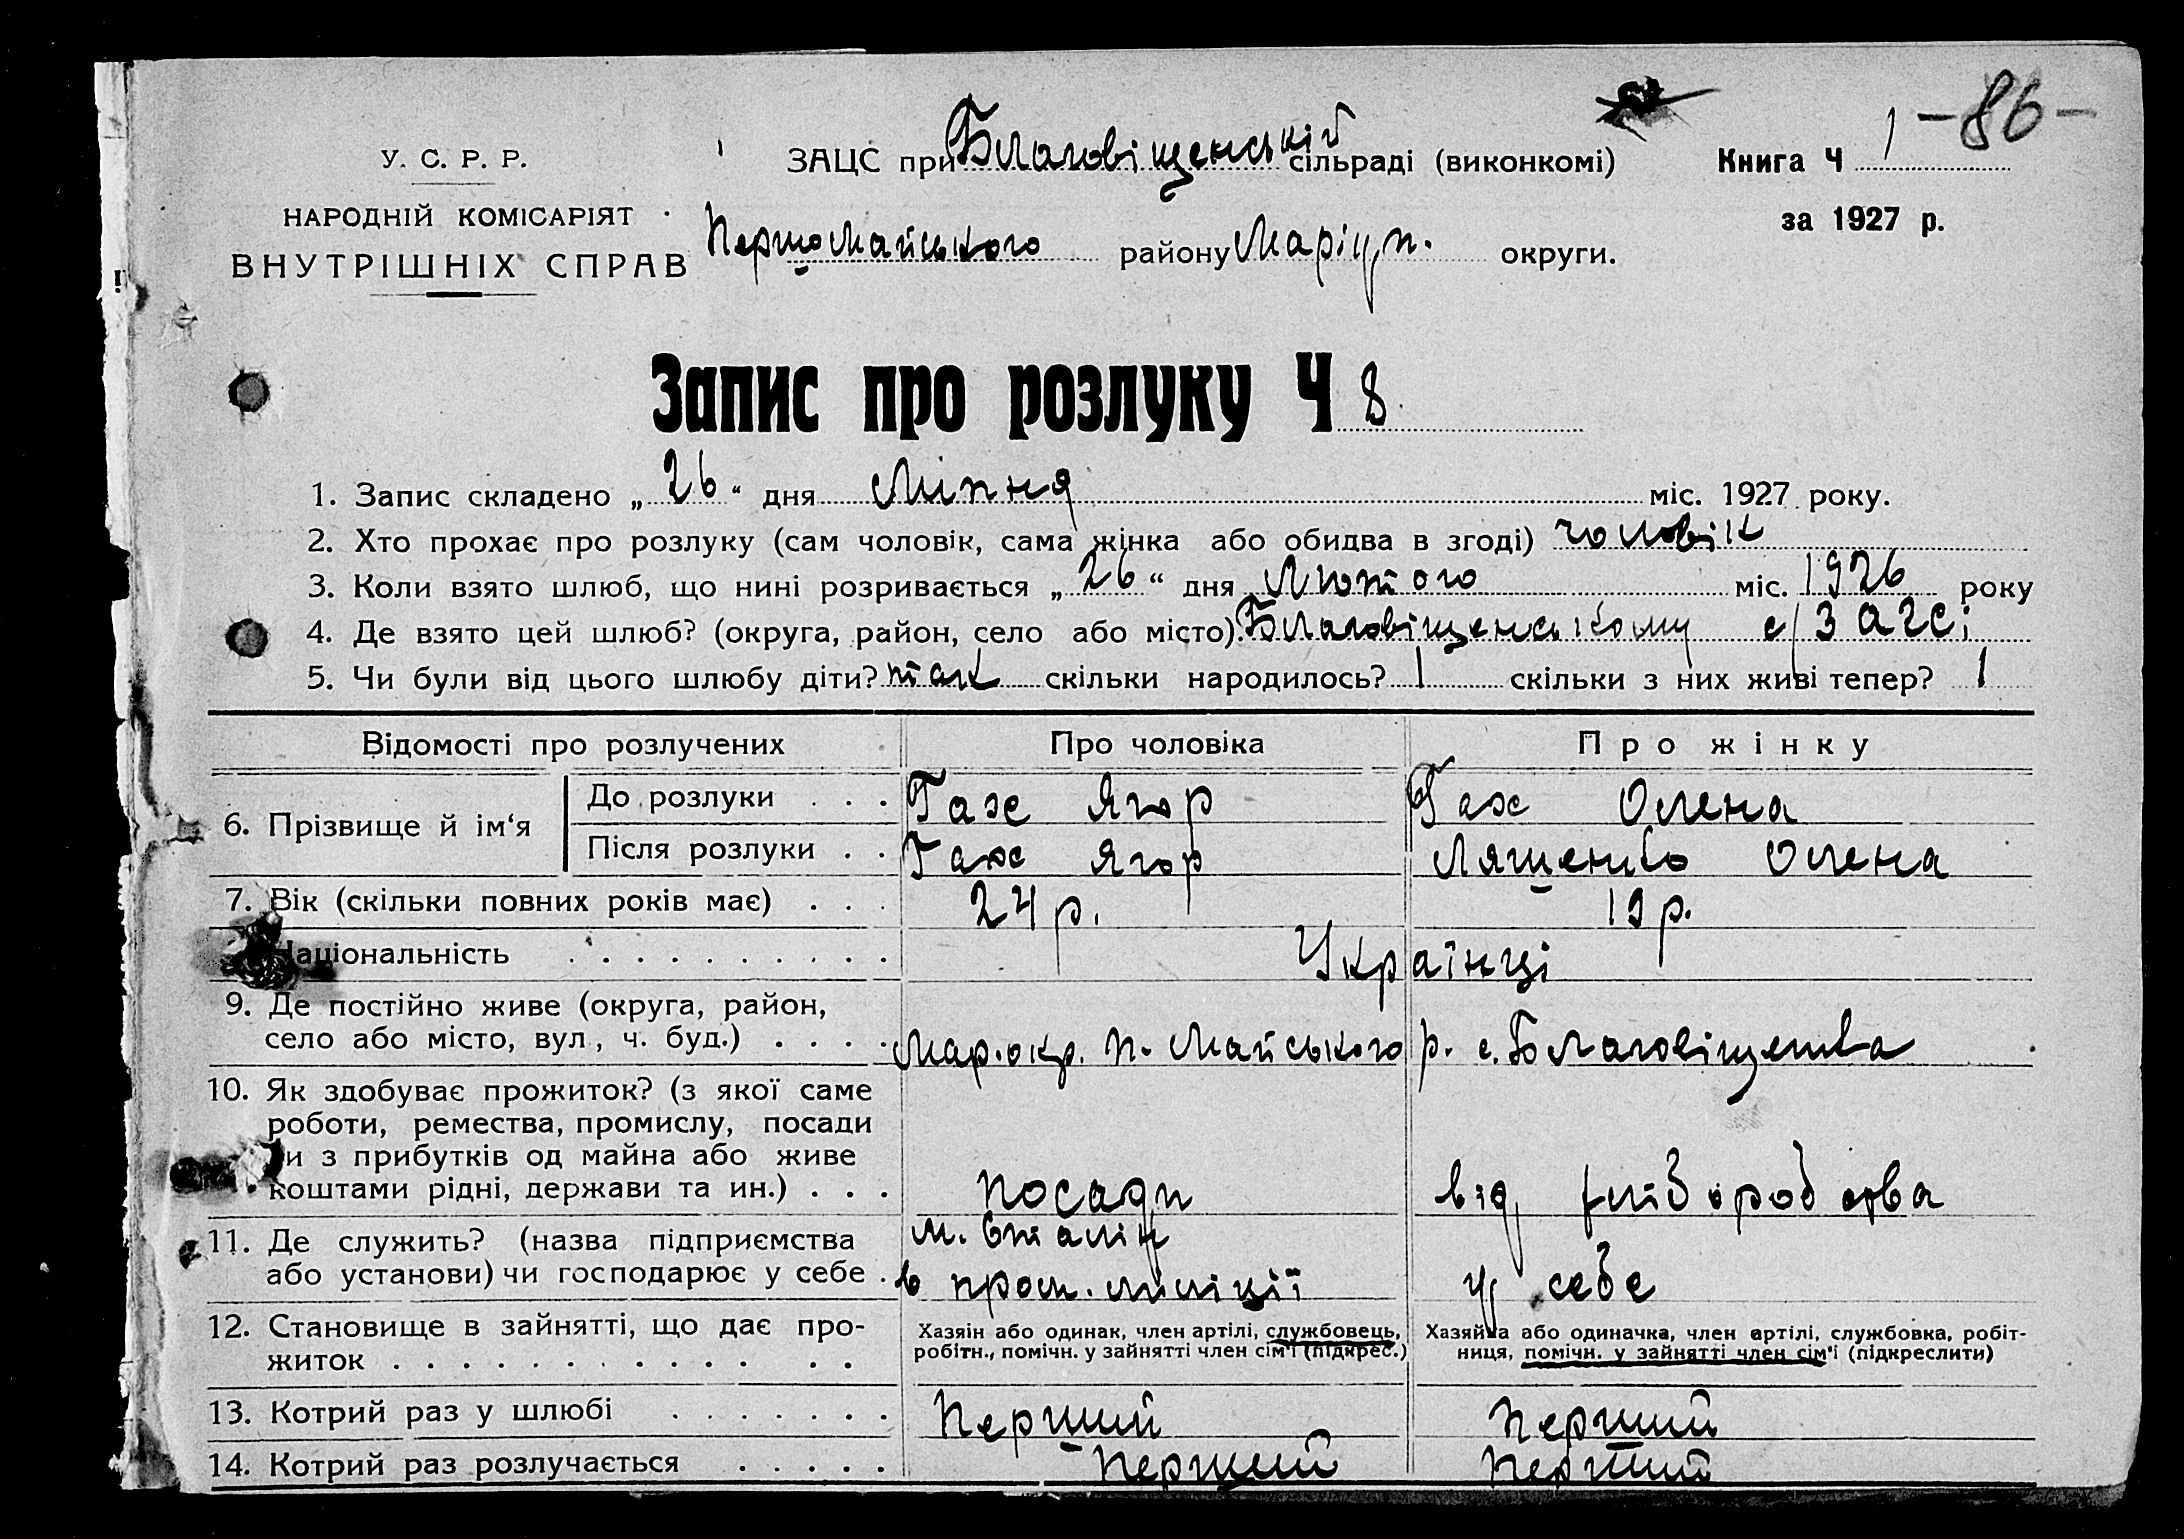 -86-
У. С. Р. Р.
НАРОДНІЙ КОМІСАРІЯТ
ВНУТРІШНІХ СПРАВ
ЗАЦС при Благовіщенській сільраді (виконкомі)
Першомайського району Маріуп. округи.
Книга Ч 1
за 1927 р.
Запис про розлуку Ч 8
1. Запис складено „26“ дня Ліпня міс. 1927 року.
2. Хто прохає про розлуку (сам чоловік, сама жінка або обидва в згоді) чоловік
3. Коли взято шлюб, що нині розривається „26“ дня Лютого міс. 1926 року
4. Де взято цей шлюб? (округа, район, село або місто) Благовіщенському с/загсі
5. Чи були від цього шлюбу діти? так скільки народилось? 1 скільки з них живі тепер? 1
Відомості про розлучених Про чоловіка Про жінку
6. Прізвище й ім‘я
До розлуки . . . Гаж Ягор Гаж Олена
Після розлуки . . Гаж Ягор Ляшенко Олена
7. Вік (скільки повних років має) . . . 24 р. 19 р.
Національність . . . . . . . . . . Українці
9. Де постійно живе (округа, район,
село або місто, вул., ч. буд.) . . . . Мар. окр. П. Майського р. с. Благовіщенка
10. Як здобуває прожиток? (з якої саме
роботи, ремества, промислу, посади
и з прибутків од майна або живе
коштами рідні, держави та ин.) . . . посади від хлібороб ства
11. Де служить? (назва підприємства
або установи) чи господарює у себе .
м. Сталін
в пром. міліції
у себе
12. Становище в зайнятті, що дає про-
житок . . . . . . . . . . . . .
Хазяін або одинак, член артілі, службовець,
робітн., помічн. у зайнятті член сім‘ї (підкрес.)
Хазяйка або одиначка, член артілі, службовка, робіт-
ниця, помічн. у зайнятті член сім‘ї (підкреслити)
13. Котрий раз у шлюбі . . . . . . . Перший Перший
14. Котрий раз розлучається . . . . . Перший Перший